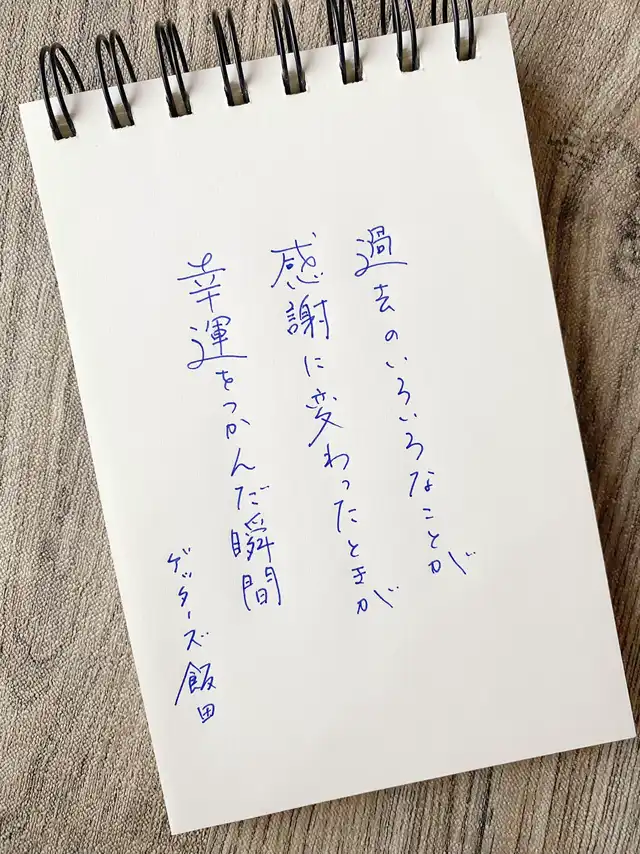 過去のいろいろなことが
感謝に変わったときが
幸運をつかんだ瞬間
ゲッターズ飯田